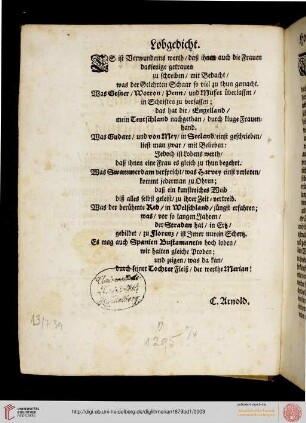 Lobgedicht.
ES ist Verwunderns werth / daß ihnen auch die Frauen
dasjenige getrauen
zu schreiben / mit Bedacht /
was der Gelehrten Schaar so viel zu thun gemacht.
Was Gesner, Wotton / Penn / und Muffet überlassen /
in Schrifften zu verfassen;
das hat dir / Engelland /
mein Teutschland nachgethan / durch kluge Frauen-
hand.
Was Gudart / und von Mey / in Seeland einst geschrieben /
liest man zwar / mit Belieben:
Jedoch ist Lobens werth /
daß ihnen eine Frau es gleich zu thun begehrt.
Was Swammerdam verspricht / was Harvey einst verloren /
kommt jederman zu Ohren;
daß ein kunstreiches Weib
diß alles selbst geleist / zu ihrer Zeit-vertreib.
Was der berühmte Red / in Welschland / jüngst erfahren;
was / vor so langen Jahren /
der Stradan hat / in Ertz /
gebildet / zu Florenz / ist Ihrer nur ein Schertz.
Es mag auch Spanien Bustamanten hoch loben /
wir halten gleiche Proben:
und zeigen / was da kan /
durch seiner Tochter Fleiß / der werthe Merian!
C. Arnold.
http://digi.ub.uni-heidelberg.de/diglit/merian1679bd1/0009